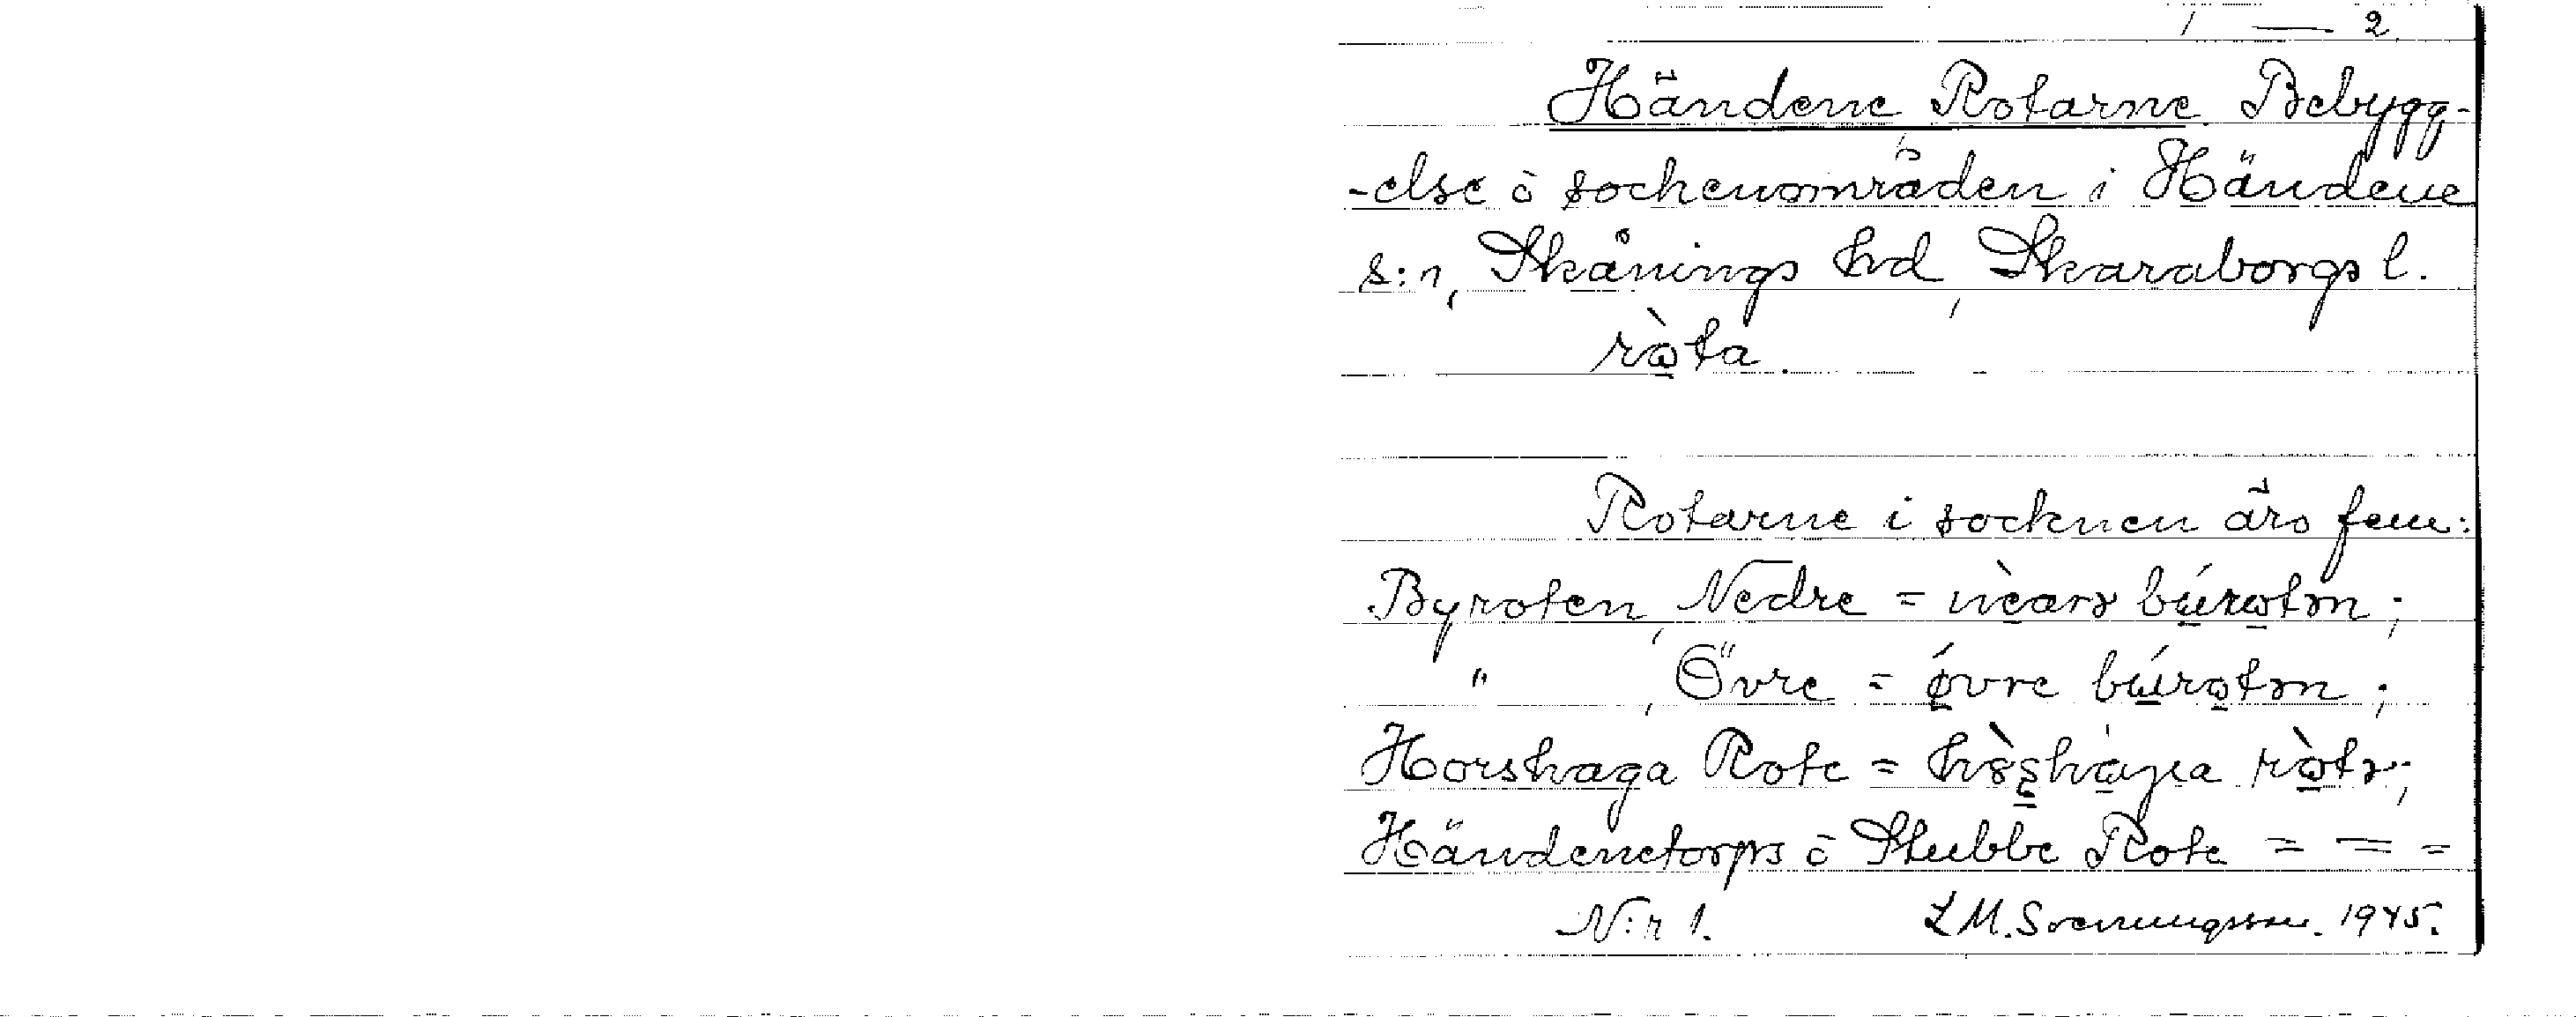 1 — 2.
Händene, Rotarne. Bebygg-
-else ō sockenområden i Händene
s:n, Skånings hd, Skaraborgs l.
rò̱ta.
Rotarne i socknen äro fem:
Byroten, Nedre = nèarə búrotən;
" , Övre = óvre búrotən;
Horshaga Rote = hòshàga ròtə;
Händenetorps ō Stubbe Rote = = =
N:r 1. L M. Svenungsson. 1945.